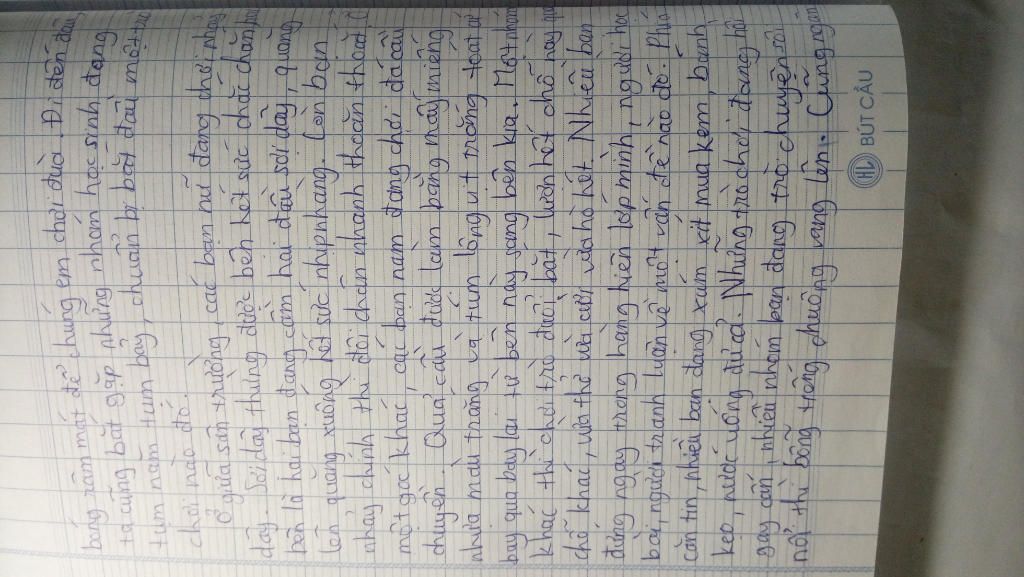 bóng râm mát để chúng em chơi đùa. Đi đến đâu
ta cũng bắt gặp những nhóm học sinh đang
tụm năm tụm bảy, chuẩn bị bắt đầu một trò
chơi nào đó.
Ở giữa sân trường, các bạn nữ đang chơi nhảy
dây. Sợi dây thừng được bện hết sức chắc chắn, hai
bên là hai bạn đang cầm hai đầu sợi dây, quăng
lên quăng xuống hết sức nhịp nhàng. Còn bạn
nhảy chính thì đôi chân nhanh thoăn thoắt. Ở
một góc khác, các bạn nam đang chơi đá cầu
chuyền. Quả cầu được làm bằng mấy miếng
nhựa màu trắng và túm lông vịt trắng toát cứ
bay qua bay lại từ bên này sang bên kia. Một nhóm
khác thì chơi trò đuổi bắt, luồn hết chỗ này qua
chỗ khác, vừa thở vừa cười vừa hò hét. Nhiều bạn
đứng ngay trong hàng hiên lớp mình, người hỏi
bài, người tranh luận về một vấn đề nào đó. Phía
căn tin, nhiều bạn đang xúm xít mua kem, bánh
kẹo, nước uống đủ cả. Những trò chơi đang hồi
gay cấn, nhiều nhóm bạn đang trò chuyện sôi
nổi thì bỗng trống chuông vang lên. Cũng ngoan
BÚT CẦU